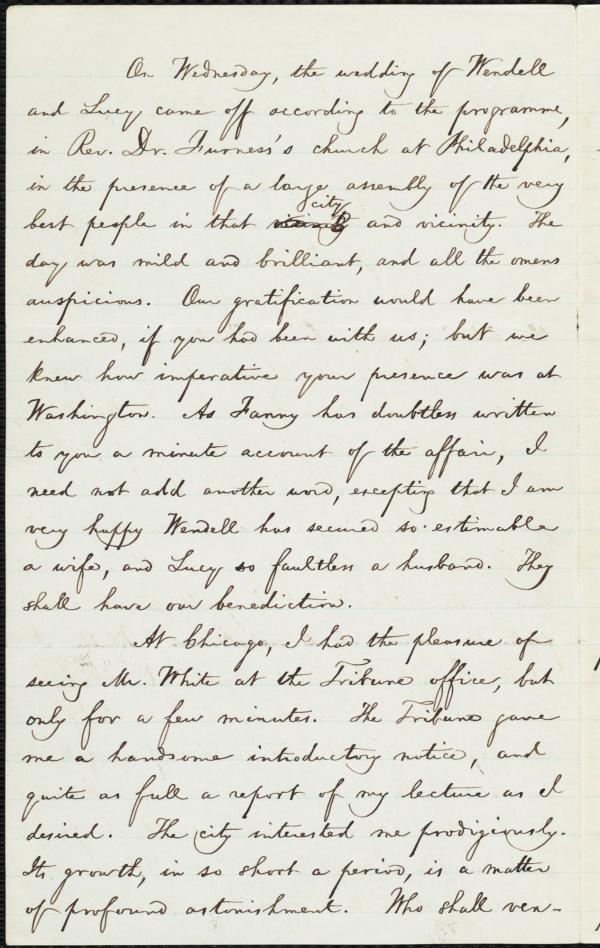 On Wednesday, the wedding of Wendell
and Lucy came off according to the programme,
in Rev. Dr. Furness's church at Philadelphia,
in the presence of a large assembly of the very
city
best people in that vicinity and vicinity. The
day was mild and brilliant, and all the omens
auspicious. Our gratification would have been
enhanced, if you had been with us; but we
knew how imperative your presence was at
Washington. As Fanny has doubtless written
to you a minute account of the affair, I
need not add another word, excepting that I am
very happy Wendell has secured so estimable
a wife, and Lucy so faultless a husband. They
shall have our benediction.
At Chicago, I had the pleasure of
seeing Mr. White at the Tribune office, but
only for a few minutes. The Tribune gave
me a handsome introductory notice, and
quite as full a report of my lecture as I
desired. The city interested me prodigiously.
Its growth, in so short a period, is a matter
of profound astonishment. Who shall ven-